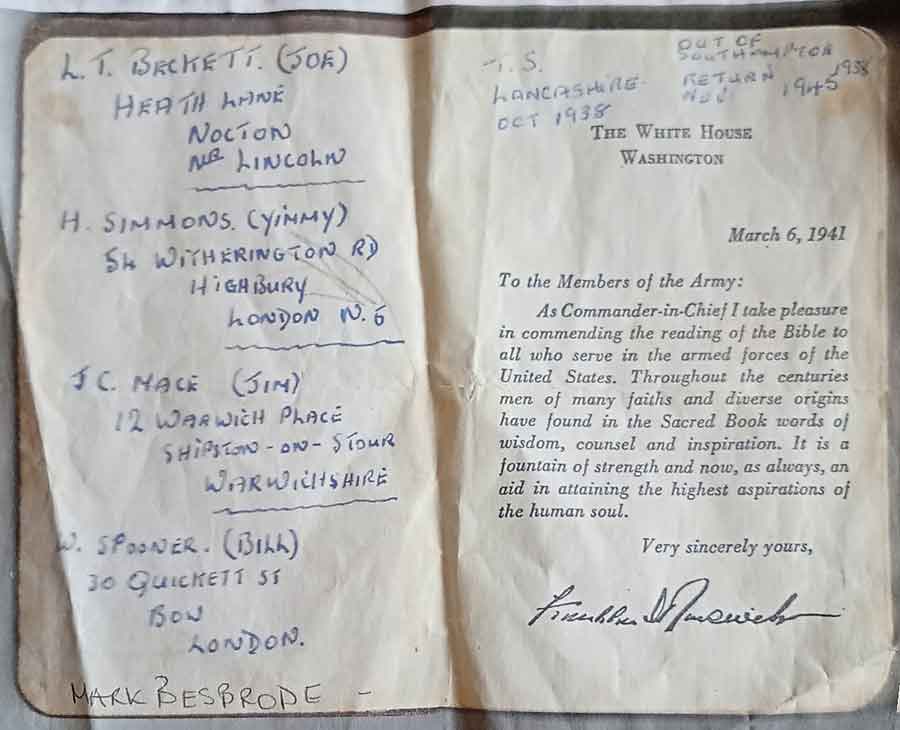 L. T. BECKETT. (JOE)
HEATH LANE
NOCTON
NR LINCOLN
H. SIMMONS. (YIMMY)
54 WITHERINGTON RD
HIGHBURY
LONDON N.5
J C. MACE (JIM)
12 WARWICH PLACE
SHIPSTON-ON-STOUR
WARWICHSHIRE
W. SPOONER. (BILL)
30 QUICKETT ST
BOW
LONDON.
MARK BESBRODE -
T. S.
LANCASHIRE
OCT 1938
OUT OF
SOUTHAMPTON
1938
RETURN
NOV 1945
THE WHITE HOUSE
WASHINGTON
March 6, 1941
To the Members of the Army:
As Commander-in-Chief I take pleasure
in commending the reading of the Bible to
all who serve in the armed forces of the
United States. Throughout the centuries
men of many faiths and diverse origins
have found in the Sacred Book words of
wisdom, counsel and inspiration. It is a
fountain of strength and now, as always, an
aid in attaining the highest aspirations of
the human soul.
Very sincerely yours,
Franklin D Roosevelt